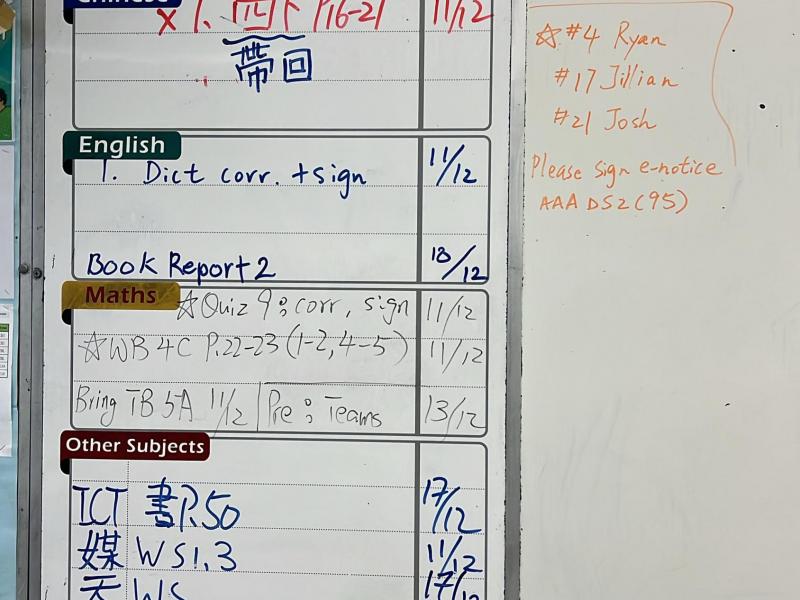 Chinese
x 1. 四下 P16-21 11/12
帶回
English
1. Dict corr. + sign 11/12
Book Report 2 18/12
Maths
☆Quiz 9: corr, sign 11/12
☆WB 4C P.22-23 (1-2, 4-5) 11/12
Bring TB 5A 11/12 | Pre: Teams 13/12
Other Subjects
ICT 書P.50 17/12
媒 WS1.3 11/12
WS 17/12
☆ #4 Ryan
#17 Jillian
#21 Josh
Please sign e-notice
AAA DS2 (95)